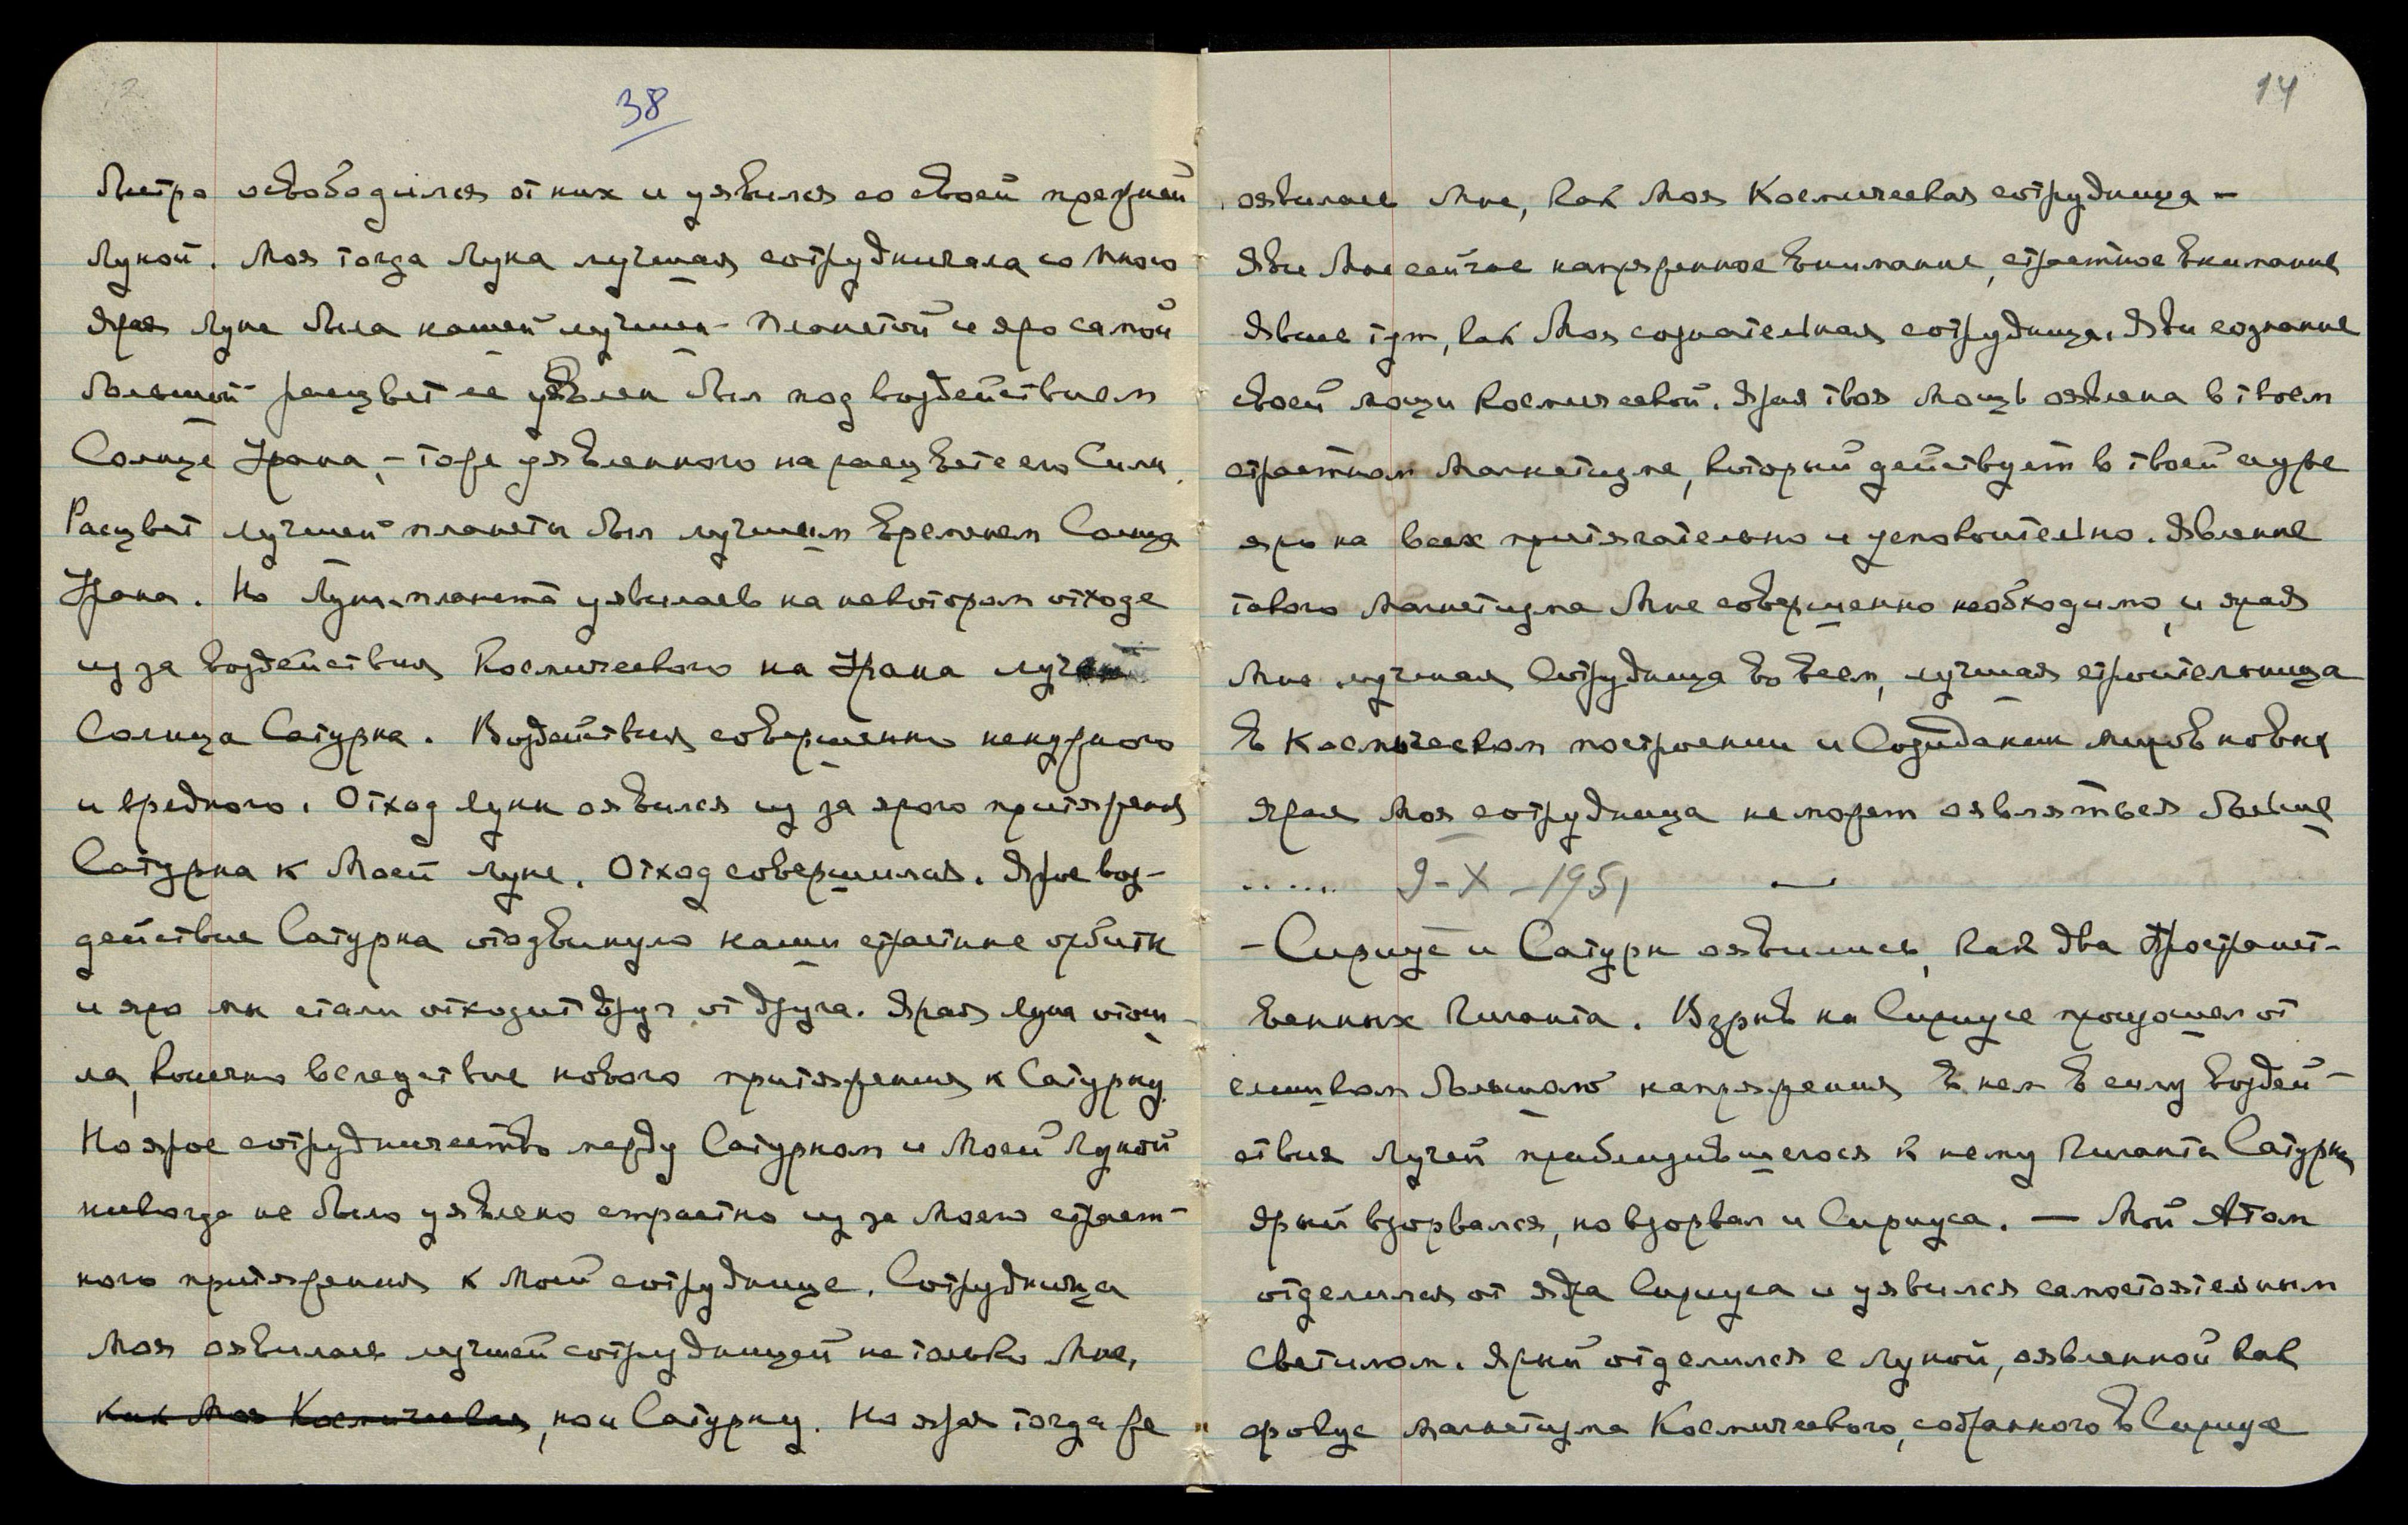 38
Быстро освободился от них и уявился со своей прежней
Луной. Моя тогда Луна лучшая сотрудничала со Мною
Ярая Луна была нашей лучшей планетой и яро самой
большой расцвет ее уявлен был под воздействием
Солнца Урана, – тоже уявленного на расцвете его Силы.
Расцвет лучшей планеты был лучшим временем Солнца
Урана. Но Луна-планета уявилась на некотором отходе
из за воздействия Космического на Урана
Солнца Сатурна. Воздействия совершенно ненужного
и вредного. Отход луны оявился из за ярого притяжения
Сатурна к Моей луне. Отход совершился. Ярое воз-
действие Сатурна отодвинуло наши страстные орбиты
и яро мы стали отходит друг от друга. Ярая Луна отош-
ла, конечно вследствие нового притяжения к Сатурну.
Но ярое сотрудничество между Сатурном и Моей Луной
никогда не было уявлено страстно из за Моего страст-
ного притяжения к Моей сотруднице. Сотрудница
Моя оявилась лучшей сотрудницей не только Мне,
как Моя Космическая, но и Сатурну. Но ярая тогда же
14
оявилась Мне, как Моя Космическая сотрудница –
Яви Мне сейчас напряженное внимание, страстное внимание
Явись тут, как Моя сознательная сотрудница. Яви сознание
своей мощи Космической. Ярая твоя Мощь оявлена в твоем
страстном Магнетизме, который действует в твоей ауре
яро на всех притягательно и успокоительно. Явление
такого Магнетизма Мне совершенно необходимо, и ярая
Мне лучшая Сотрудница во всем, лучшая строительница
в Космическом построении и Созидании миров новых
Ярая Моя сотрудница не может оявляться больше
...... 9-X-1951 —
– Сириус и Сатурн оявились, как два Пространст-
венных Гиганта. Взрыв на Сириусе произошел от
слишком большого напряжения в нем в силу воздей-
ствия лучей приблизившегося к нему Гиганта Сатурна
Ярый взорвался, но взорвал и Сириуса. — Мой Атом
отделился от ядра Сириуса и уявился самостоятельным
Светилом. Ярый отделился с Луной, оявленной как
фокус магнетизма Космического, собранного в Сириусе